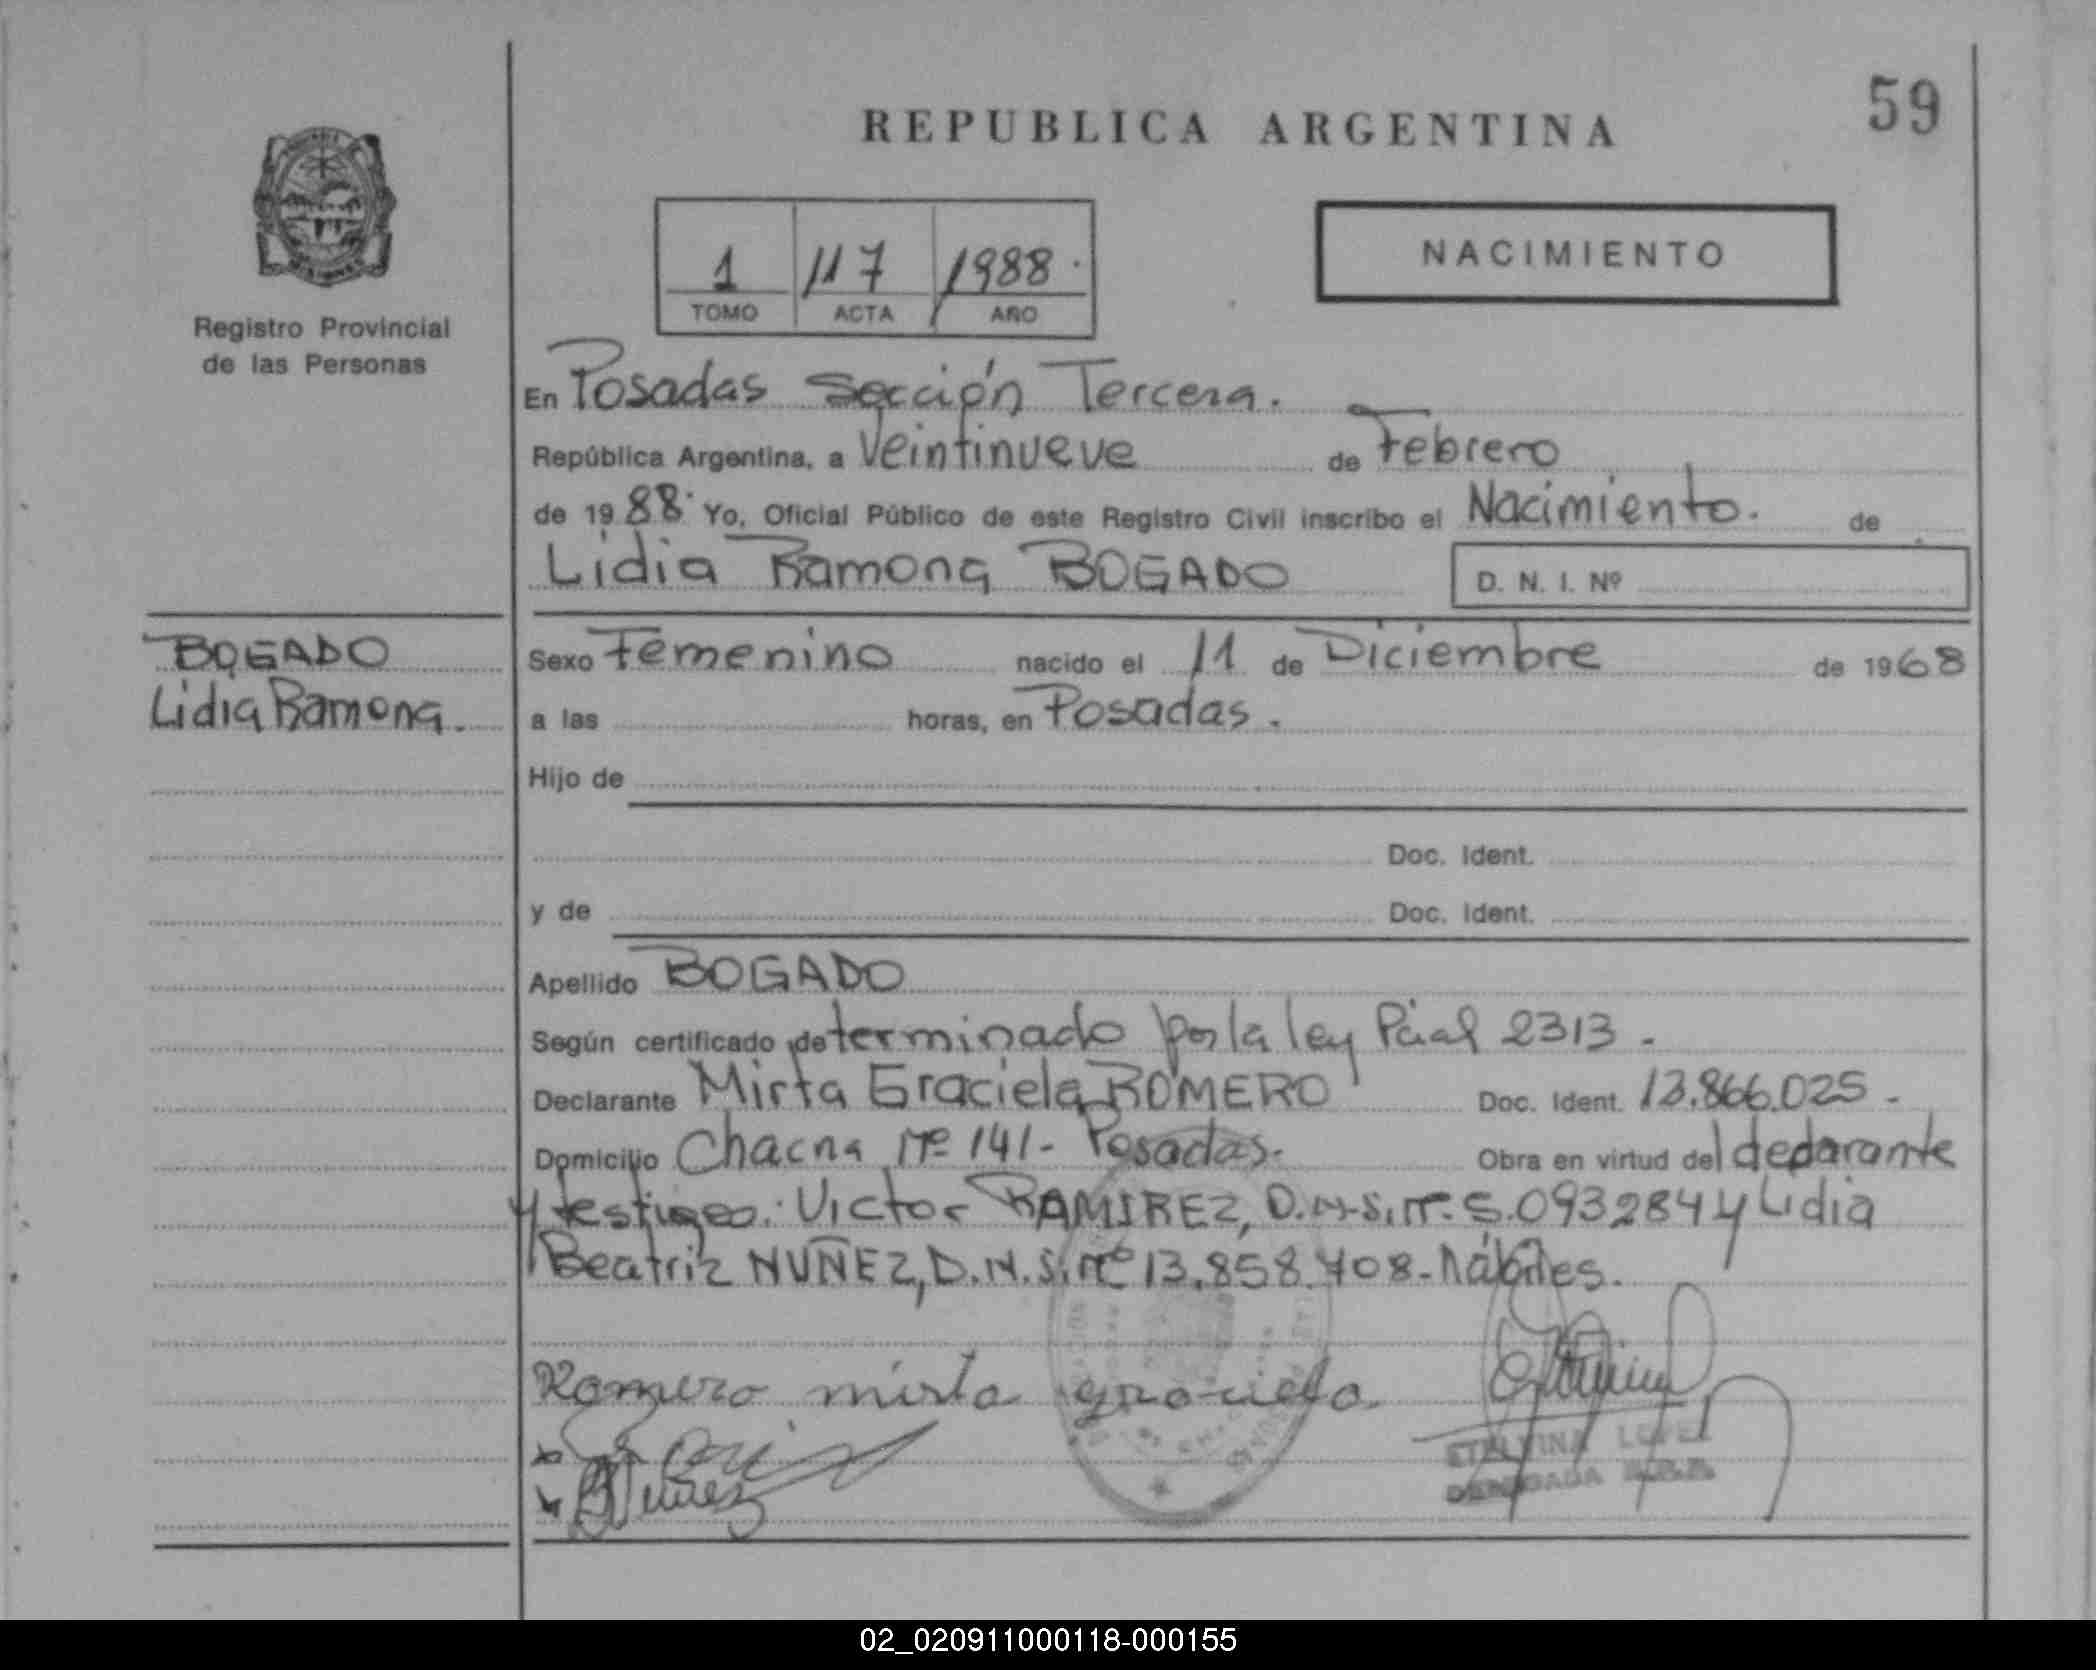 59
REPUBLICA ARGENTINA
NACIMIENTO
1 117 1988.
TOMO ACTA AÑO
Registro Provincial
de las Personas
En Posadas Sección Tercera.
República Argentina, a Veintinueve de Febrero
de 1988. Yo, Oficial Público de este Registro Civil inscribo el Nacimiento. de
Lidia Ramona BOGADO D. N. I. Nº
BOGADO
Lidia Ramona.
Sexo Femenino nacido el 11 de Diciembre de 1968
a las horas, en Posadas.
Hijo de
Doc. Ident.
y de Doc. Ident.
Apellido BOGADO
Según certificado determinado por la ley Pcial 2313.
Declarante Mirta Graciela ROMERO Doc. Ident. 13.866.025.
Domicilio Chacra Nº 141- Posadas. Obra en virtud del declarante
y testigos: Victor RAMIREZ, D.N.I. nº 5.093284 y Lidia
Beatriz NUÑEZ, D.N.I. nº 13.858.408- hábiles.
Romero mirta graciela
BNuñez
ETELVINA LOPEZ
DELEGADA
02_020911000118-000155